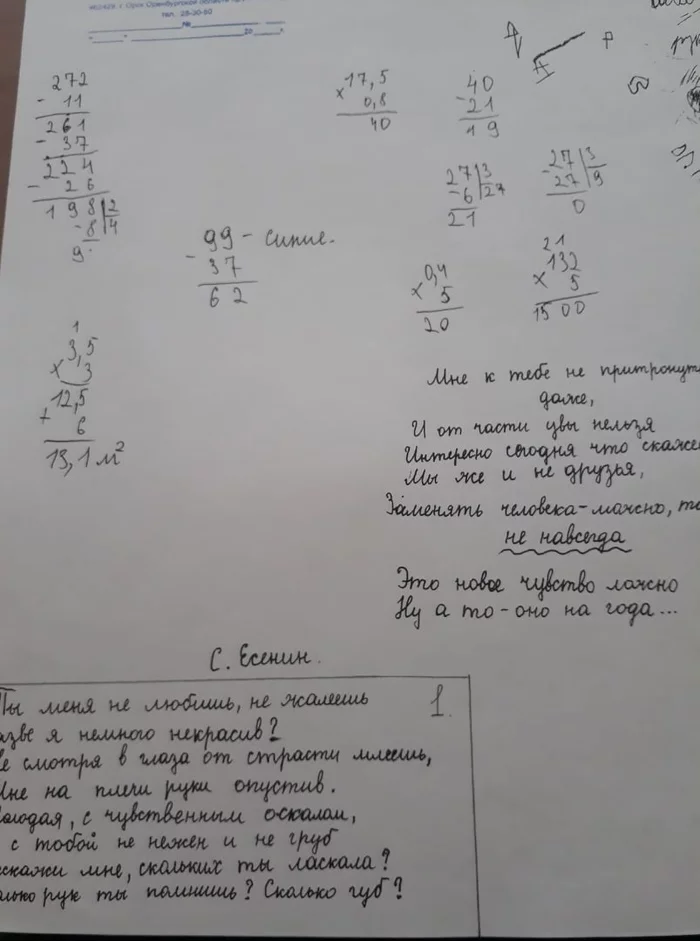 тел. 25-30-50
№ 20
А
Р
А
272
- 11
261
- 37
224
- 26
198 | 2
- 8 | 4
9
17,5
× 0,8
40
40
- 21
19
27 | 3
- 6 | 27
21
27 | 3
- 27 | 9
0
99 - синие.
- 37
62
0,4
× 5
20
21
132
× 5
1500
1
3,5
× 3
12,5
+ 6
13,1 м²
Мне к тебе не притронут
даже,
И от части увы нельзя
Интересно сегодня что скаже
Мы же и не друзья,
Заменять человека-можно, то
не навсегда
Это новое чувство ложно
Ну а то-оно на года...
С. Есенин.
1.
Ты меня не любишь, не жалеешь
азве я немного некрасив?
Не смотря в глаза от страсти млеешь,
Мне на плечи руки опустив.
олодая, с чувственным оскалом,
с тобой не нежен и не груб
скажи мне, скольких ты ласкала?
олько рук ты помнишь? Сколько губ?